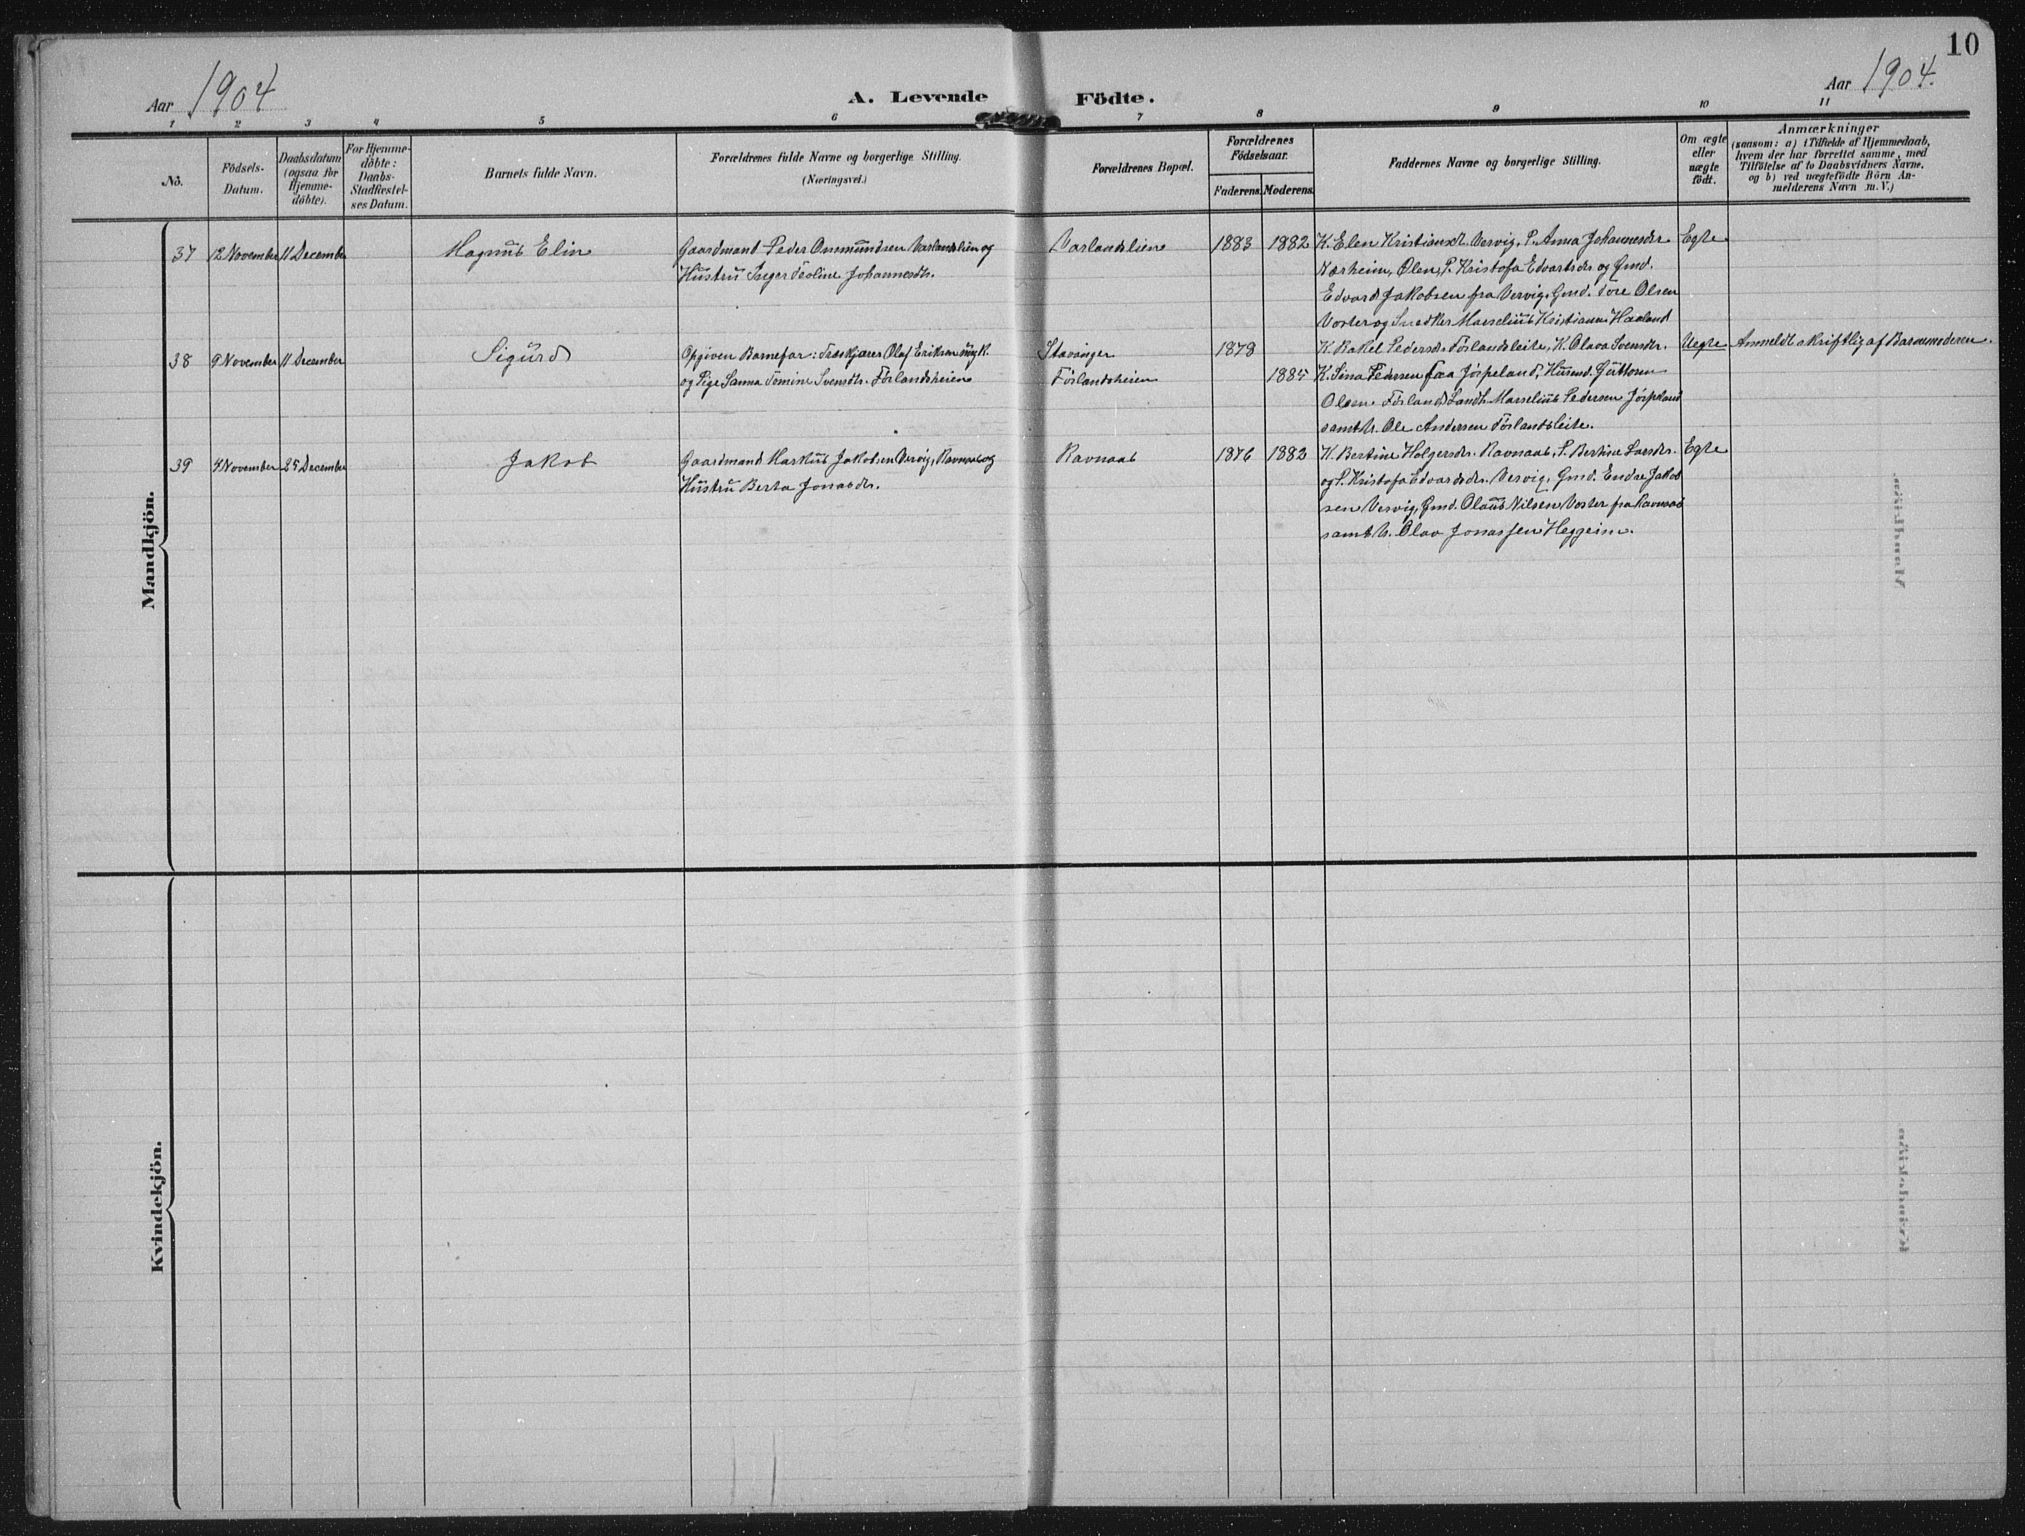 10
Aar 1904
A. Levende Födte.
Aar 1904.
1 2 3 4 5 6 7 8 9 10 11
No.
Födsels-
Datum.
Daabsdatum
(ogsaa for
Hjemme-
döbte).
For Hjemme-
döbte:
Daabs-
Stadfæstel-
ses Datum.
Barnets fulde Navn.
Forældrenes fulde Navne og borgerlige Stilling.
(Næringsvei.)
Forældrenes Bopæl.
Forældrenes
Födselsaar.
Faderens. Moderens.
Faddernes Navne og borgerlige Stilling.
Om ægte
eller
uægte
födt.
Anmærkninger
(saasom: a) i Tilfælde af Hjemmedaab,
hvem der har forrettet samme, med
Tilföielse af to Daabsvidners Navne,
og b) ved uægtefödte Börn An-
melderens Navn m. V.)
Mandkjön.
37 12 November 11 December Magnus Elin
Gaardmand Peder Onsmundsen Varlandslien og
Hustru Inger Teoline Johannesdtr.
Varlandsliene 1883 1882
K. Elen Kristiansdt. Vervig, P. Anna Johannesdtr
Nærheim, Ølen, P. Kristofa Edvartsdtr og Gmd.
Edvard Jakobsen fra Vervig, Gmd. Tore Olsen
Voster og Snedker Marselius Kristiansen Haaland
Egte
38 9 November 11 December Sigurd
Opgiven Barnefar: Træskjærer Olaf Eriksen Ungk.
og Pige Sanna Tomine Svensdtr. Förlandsheien
Stavanger 1878
Förlandsheien 1885
K. Rakel Pedersdtr Förlandsleite, K. Olava Svensdtr.
K. Sina Pedersen fra Jörpeland, Husmd. Guttorm
Olsen Förland, Landh. Marselius Pedersen Jörpeland
samt U. Ole Andersen Förlandsleite.
Uegte Anmeldt skriftlig af Barnemoderen.
39 4 November 25 December Jakob
Gaardmand Markus Jakobsen Vervig, Ravnaas og
Hustru Berta Jonasdtr.
Ravnaas 1876 1882
K. Bertine Holgersdtr. Ravnaas, P. Bertine Larsdtr.
og P. Kristofa Edvardsdtr. Vervig, Gmd. Endre Jakob
sen Vervig, Gmd. Olaus Nilsen Voster fra Ravnaas
samt U. Olav Jonassen Heggeim.
Egte
Kvindekjön.